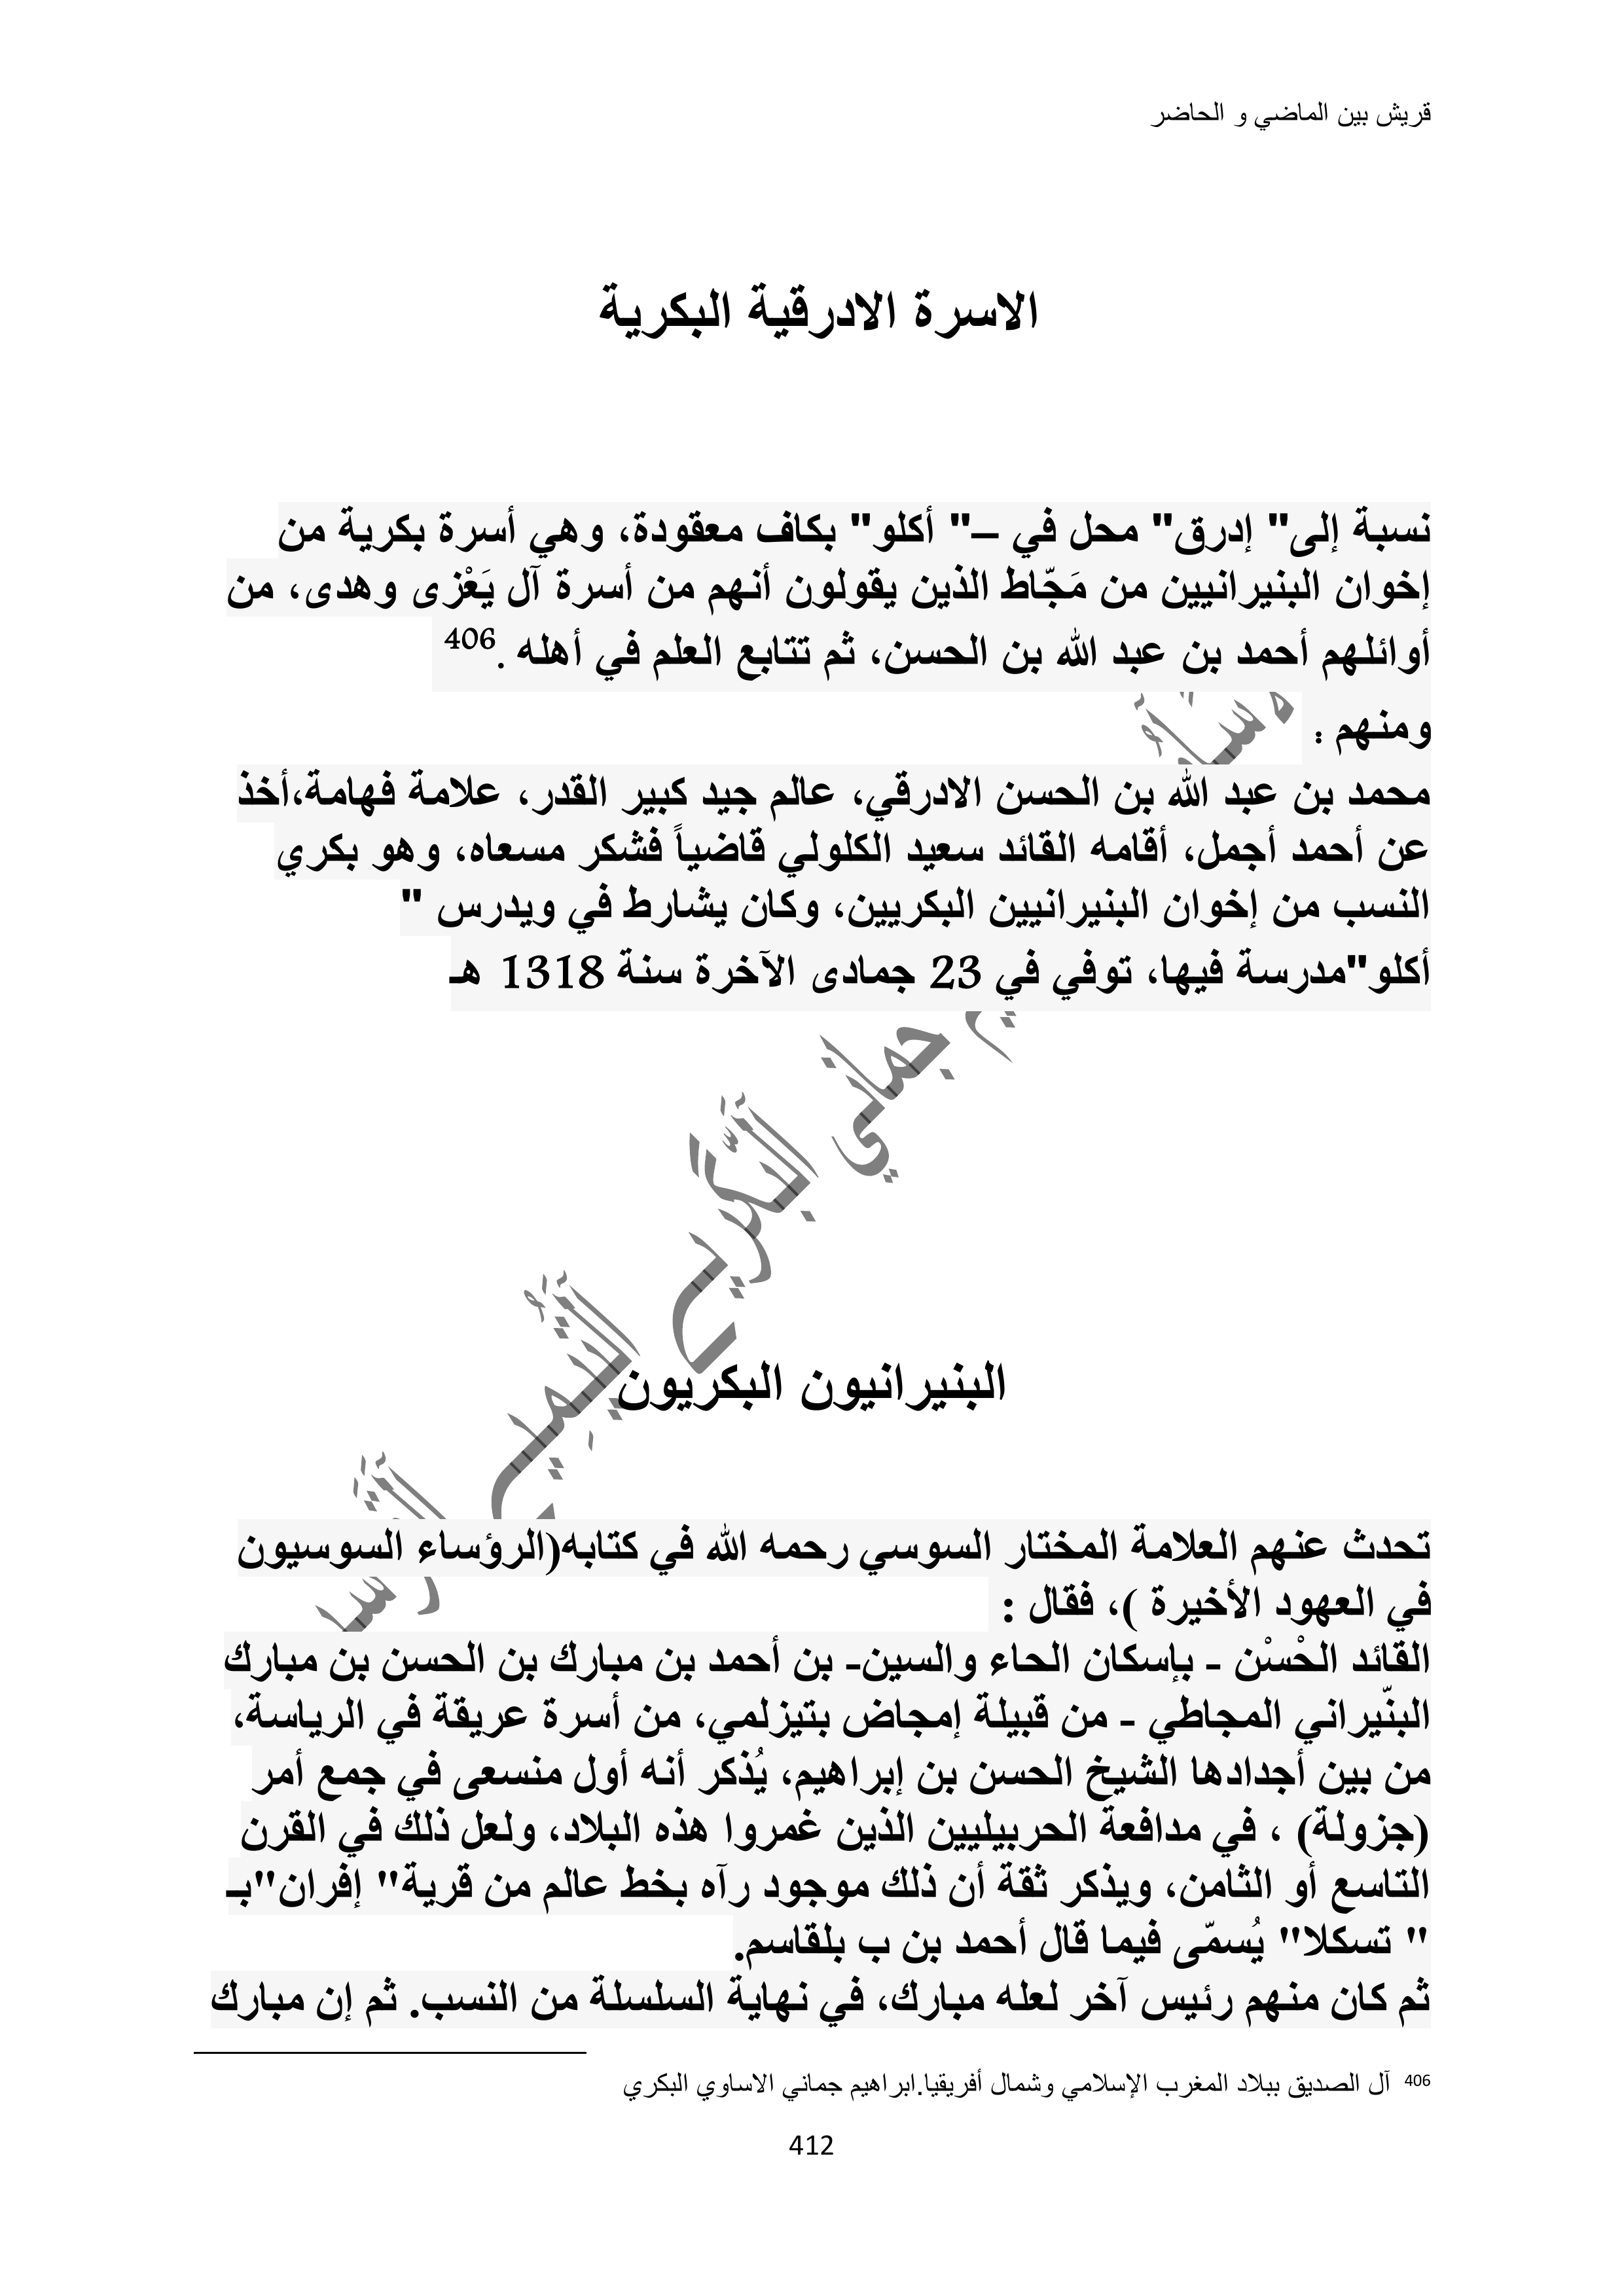 قريش بين الماضي و الحاضر
الاسرة الادرقية البكرية
نسبة إلى" إدرق" محل في –" أكلو" بكاف معقودة، وهي أسرة بكرية من
إخوان البنيرانيين من مَجّاط الذين يقولون أنهم من أسرة آل يَعْزى وهدى، من
أوائلهم أحمد بن عبد الله بن الحسن، ثم تتابع العلم في أهله .406
ومنهم :
محمد بن عبد الله بن الحسن الادرقي، عالم جيد كبير القدر، علامة فهامة،أخذ
عن أحمد أجمل، أقامه القائد سعيد الكلولي قاضياً فشكر مسعاه، وهو بكري
النسب من إخوان البنيرانيين البكريين، وكان يشارط في ويدرس "
أكلو"مدرسة فيها، توفي في 23 جمادى الآخرة سنة 1318 هـ
جماني البكري التيمي
البنيرانيون البكريون
تحدث عنهم العلامة المختار السوسي رحمه الله في كتابه(الرؤساء السوسيون
في العهود الأخيرة )، فقال :
القائد الحْسْن - بإسكان الحاء والسين- بن أحمد بن مبارك بن الحسن بن مبارك
البنّيراني المجاطي - من قبيلة إمجاض بتيزلمي، من أسرة عريقة في الرياسة،
من بين أجدادها الشيخ الحسن بن إبراهيم، يُذكر أنه أول منسعى في جمع أمر
(جزولة) ، في مدافعة الحربيليين الذين غمروا هذه البلاد، ولعل ذلك في القرن
التاسع أو الثامن، ويذكر ثقة أن ذلك موجود رآه بخط عالم من قرية" إفران"بـ
" تسكلا" يُسمّى فيما قال أحمد بن ب بلقاسم.
ثم كان منهم رئيس آخر لعله مبارك، في نهاية السلسلة من النسب. ثم إن مبارك
406 آل الصديق ببلاد المغرب الإسلامي وشمال أفريقيا.ابراهيم جماني الاساوي البكري
412